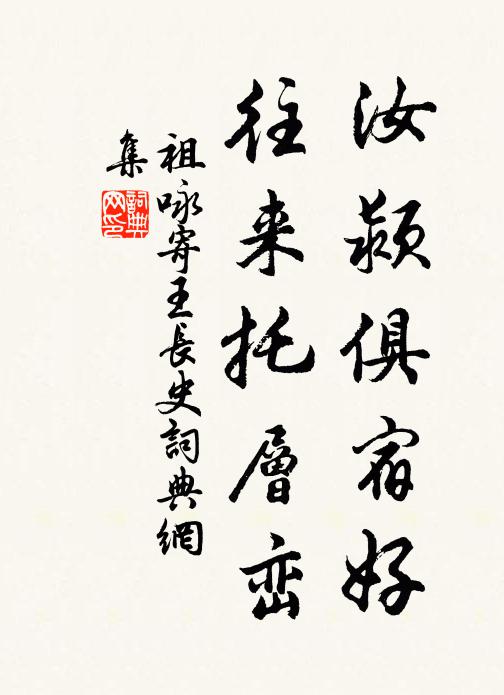 汝颍俱宿好
往来托層峦
祖咏寄王長史詞典網
集
詞典
网印